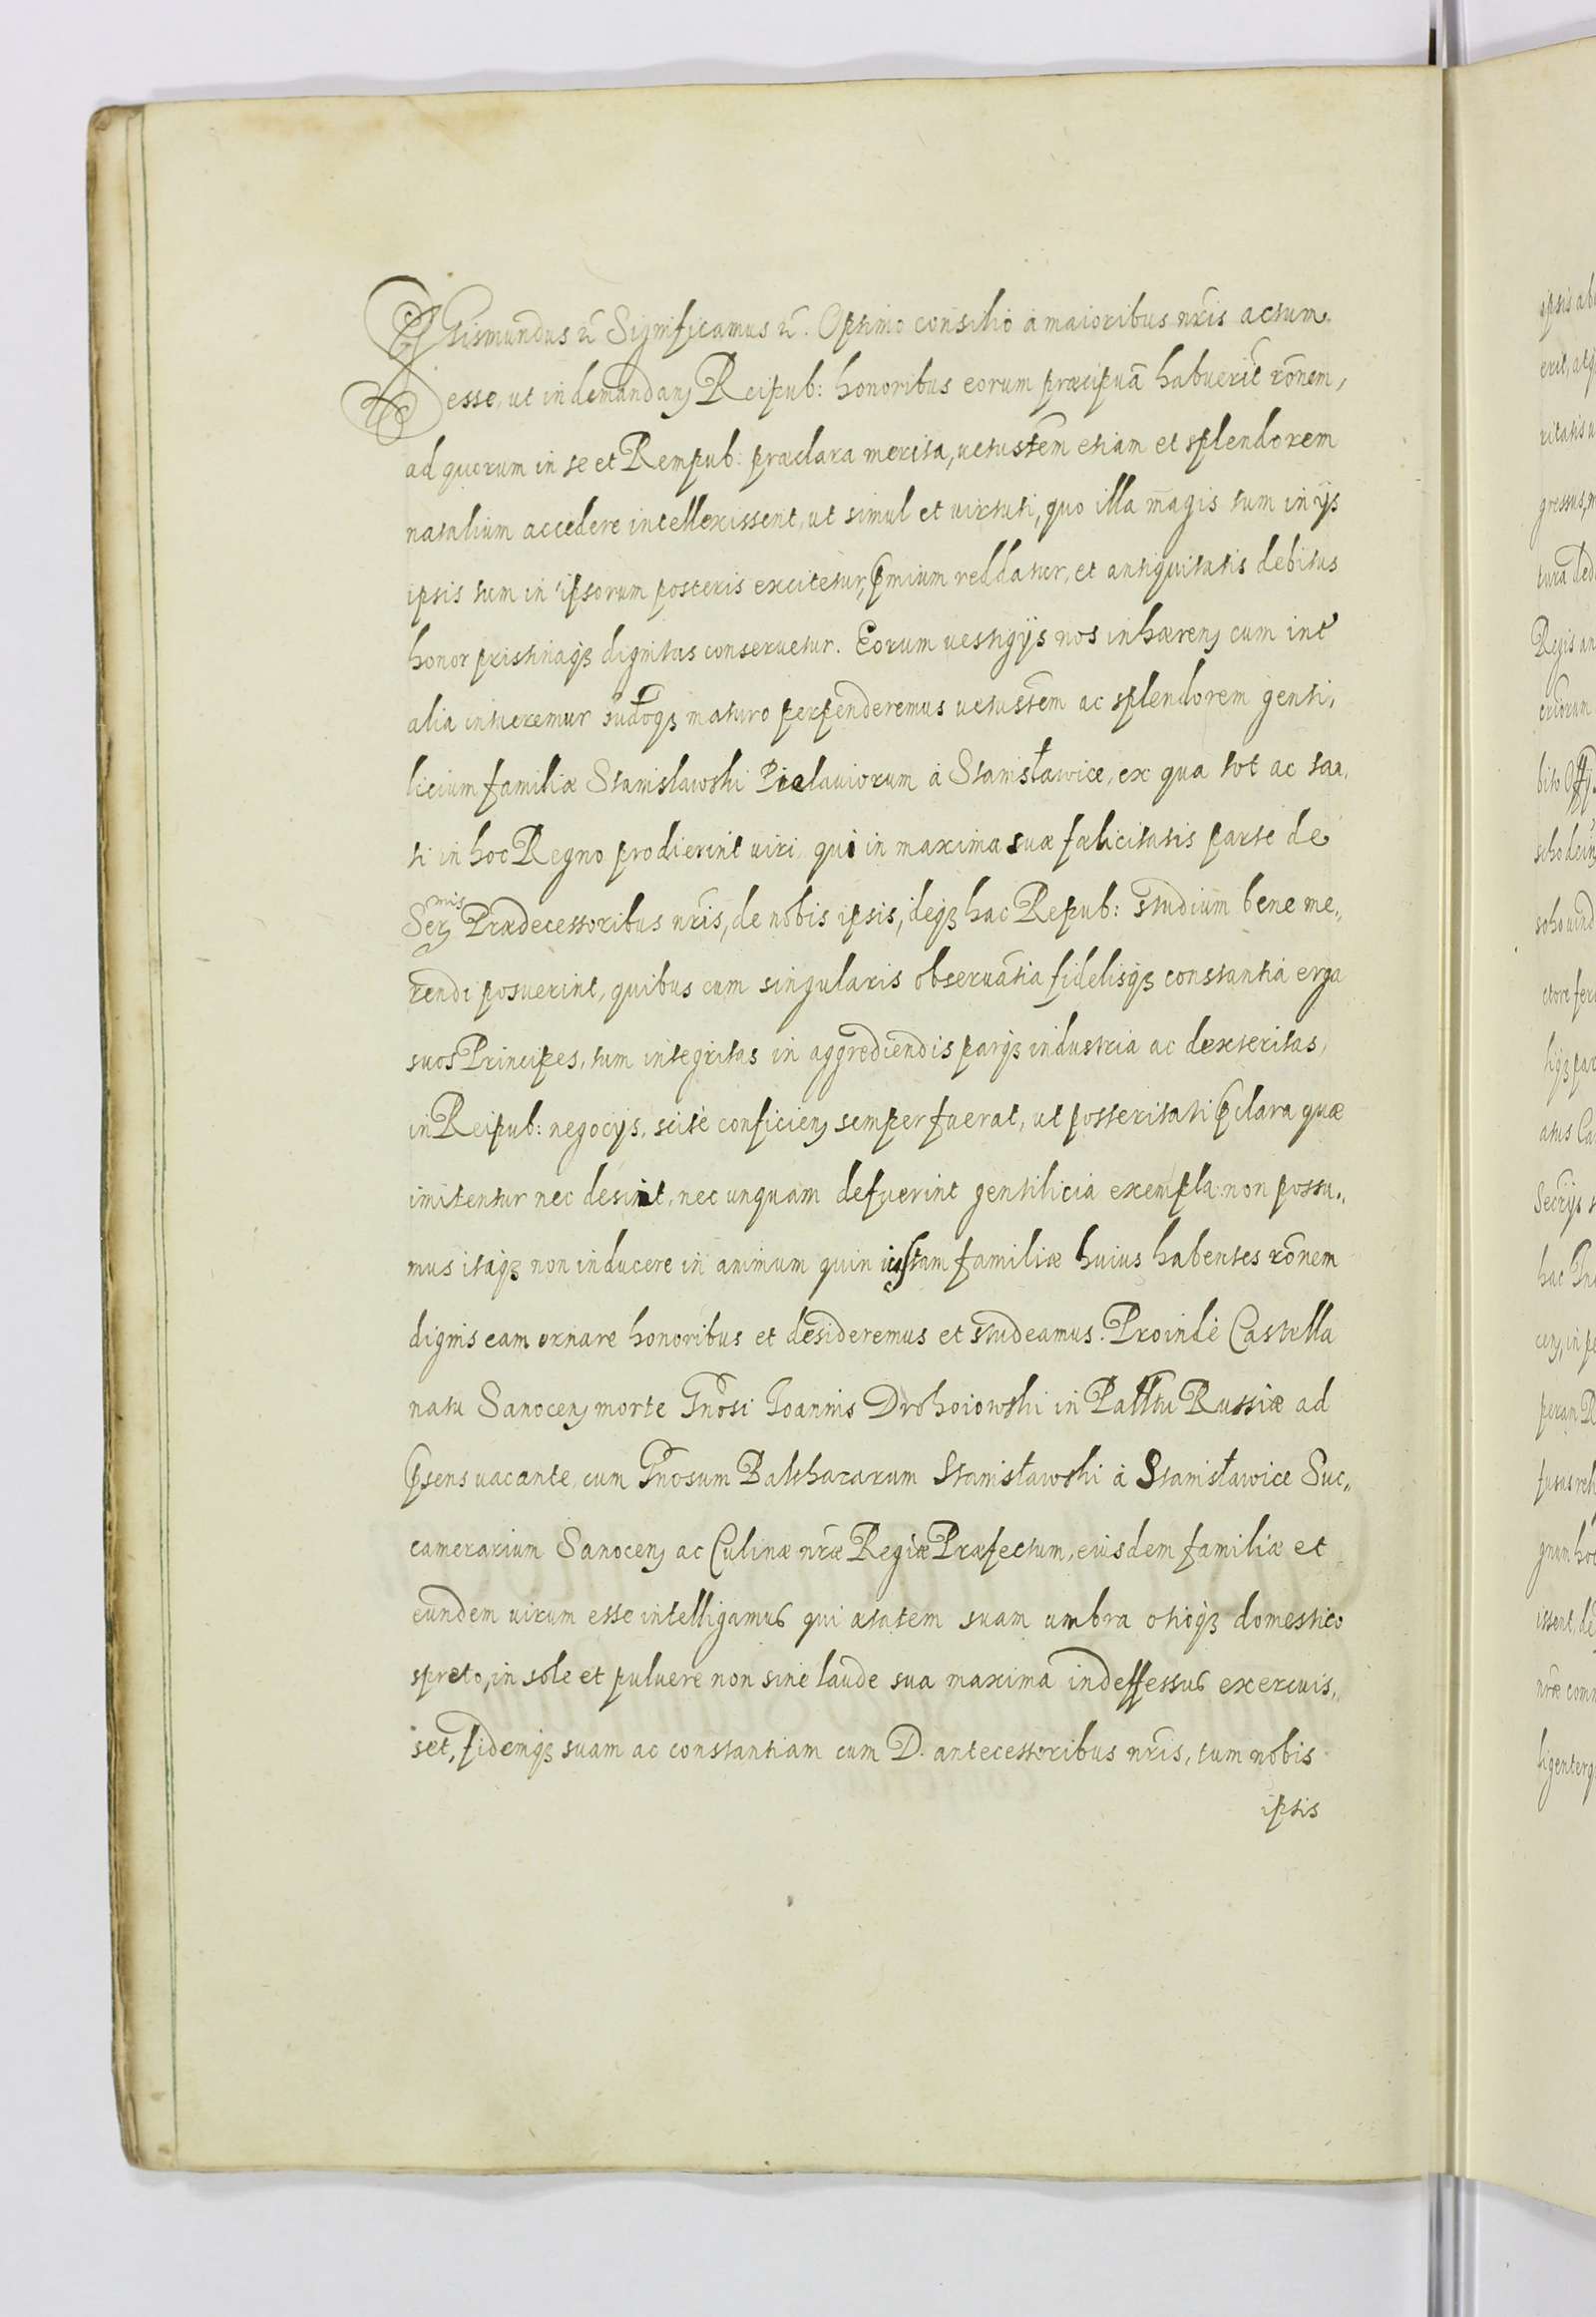 Sigismundus etc̄ Significamus etc̄. Optimo consilio à maioribus nr̃is actum
esse, ut in demandanꝫ Reipub: honoribus eorum præcipuã habuerĩt rõnem,
ad quorum in se et Rempub: præclara merita, uetustẽm etiam et splendorem
natalium accedere intellexissent, ut simul et uirtuti, quo illa magis tum in ijs
ipsis tum in ipsorum posteris excitetur, p̃mium reddatur, et antiquitatis debitus
honor pristinaqꝫ dignitas conseruetur. Eorum uestigijs nos inhærenꝫ cum int̃
alia intueremur iudõqꝫ maturo perpenderemus uetustẽm ac splendorem genti,
licium familiæ Stanislawski Pielauiorum à Stanisławice, ex qua tot ac tan,
ti in hoc Regno prodierint uiri qui in maxima suæ fœlicitatis parte de
Serꝫmis Prædecessoribus nr̃is, de nobis ipsis, deqꝫ hac Repub: studium bene me,,
rendi posuerint, quibus cum singularis obseruãtia fidelisqꝫ constantia erga
suos Principes, tum integritas in aggrediendis parqꝫ industria ac dexteritas,
in Reipub: negocijs, scitè conficienꝫ semper fuerat, ut posteritati p̃clara quæ
imitentur nec desint, nec unquam defuerint gentilicia exempla: non possu,,
mus itaqꝫ non inducere in animum quin iustam familiæ huius habentes rõnem
dignis eam ornare honoribus et desideremus et studeamus. Proindè Castella
natu Sanocenꝫ morte Gñosi Ioannis Drohoiowski in Pallttu Russiæ ad
p̃sens uacante, cum Gñosum Balthazarum Stanisławski à Stanisławice Suc,,
camerarium Sanocenꝫ ac Culinæ nr̃æ Regiæ Præfectum, eiusdem familiæ et
eundem uirum esse intelligamus qui ætatem suam umbra otioqꝫ domestico
spreto, in sole et puluere non sine laude sua maxima indeffessus exercuis,,
set, fidemqꝫ suam ac constantiam cum D. antecessoribus nr̃is, tum nobis
ipsis